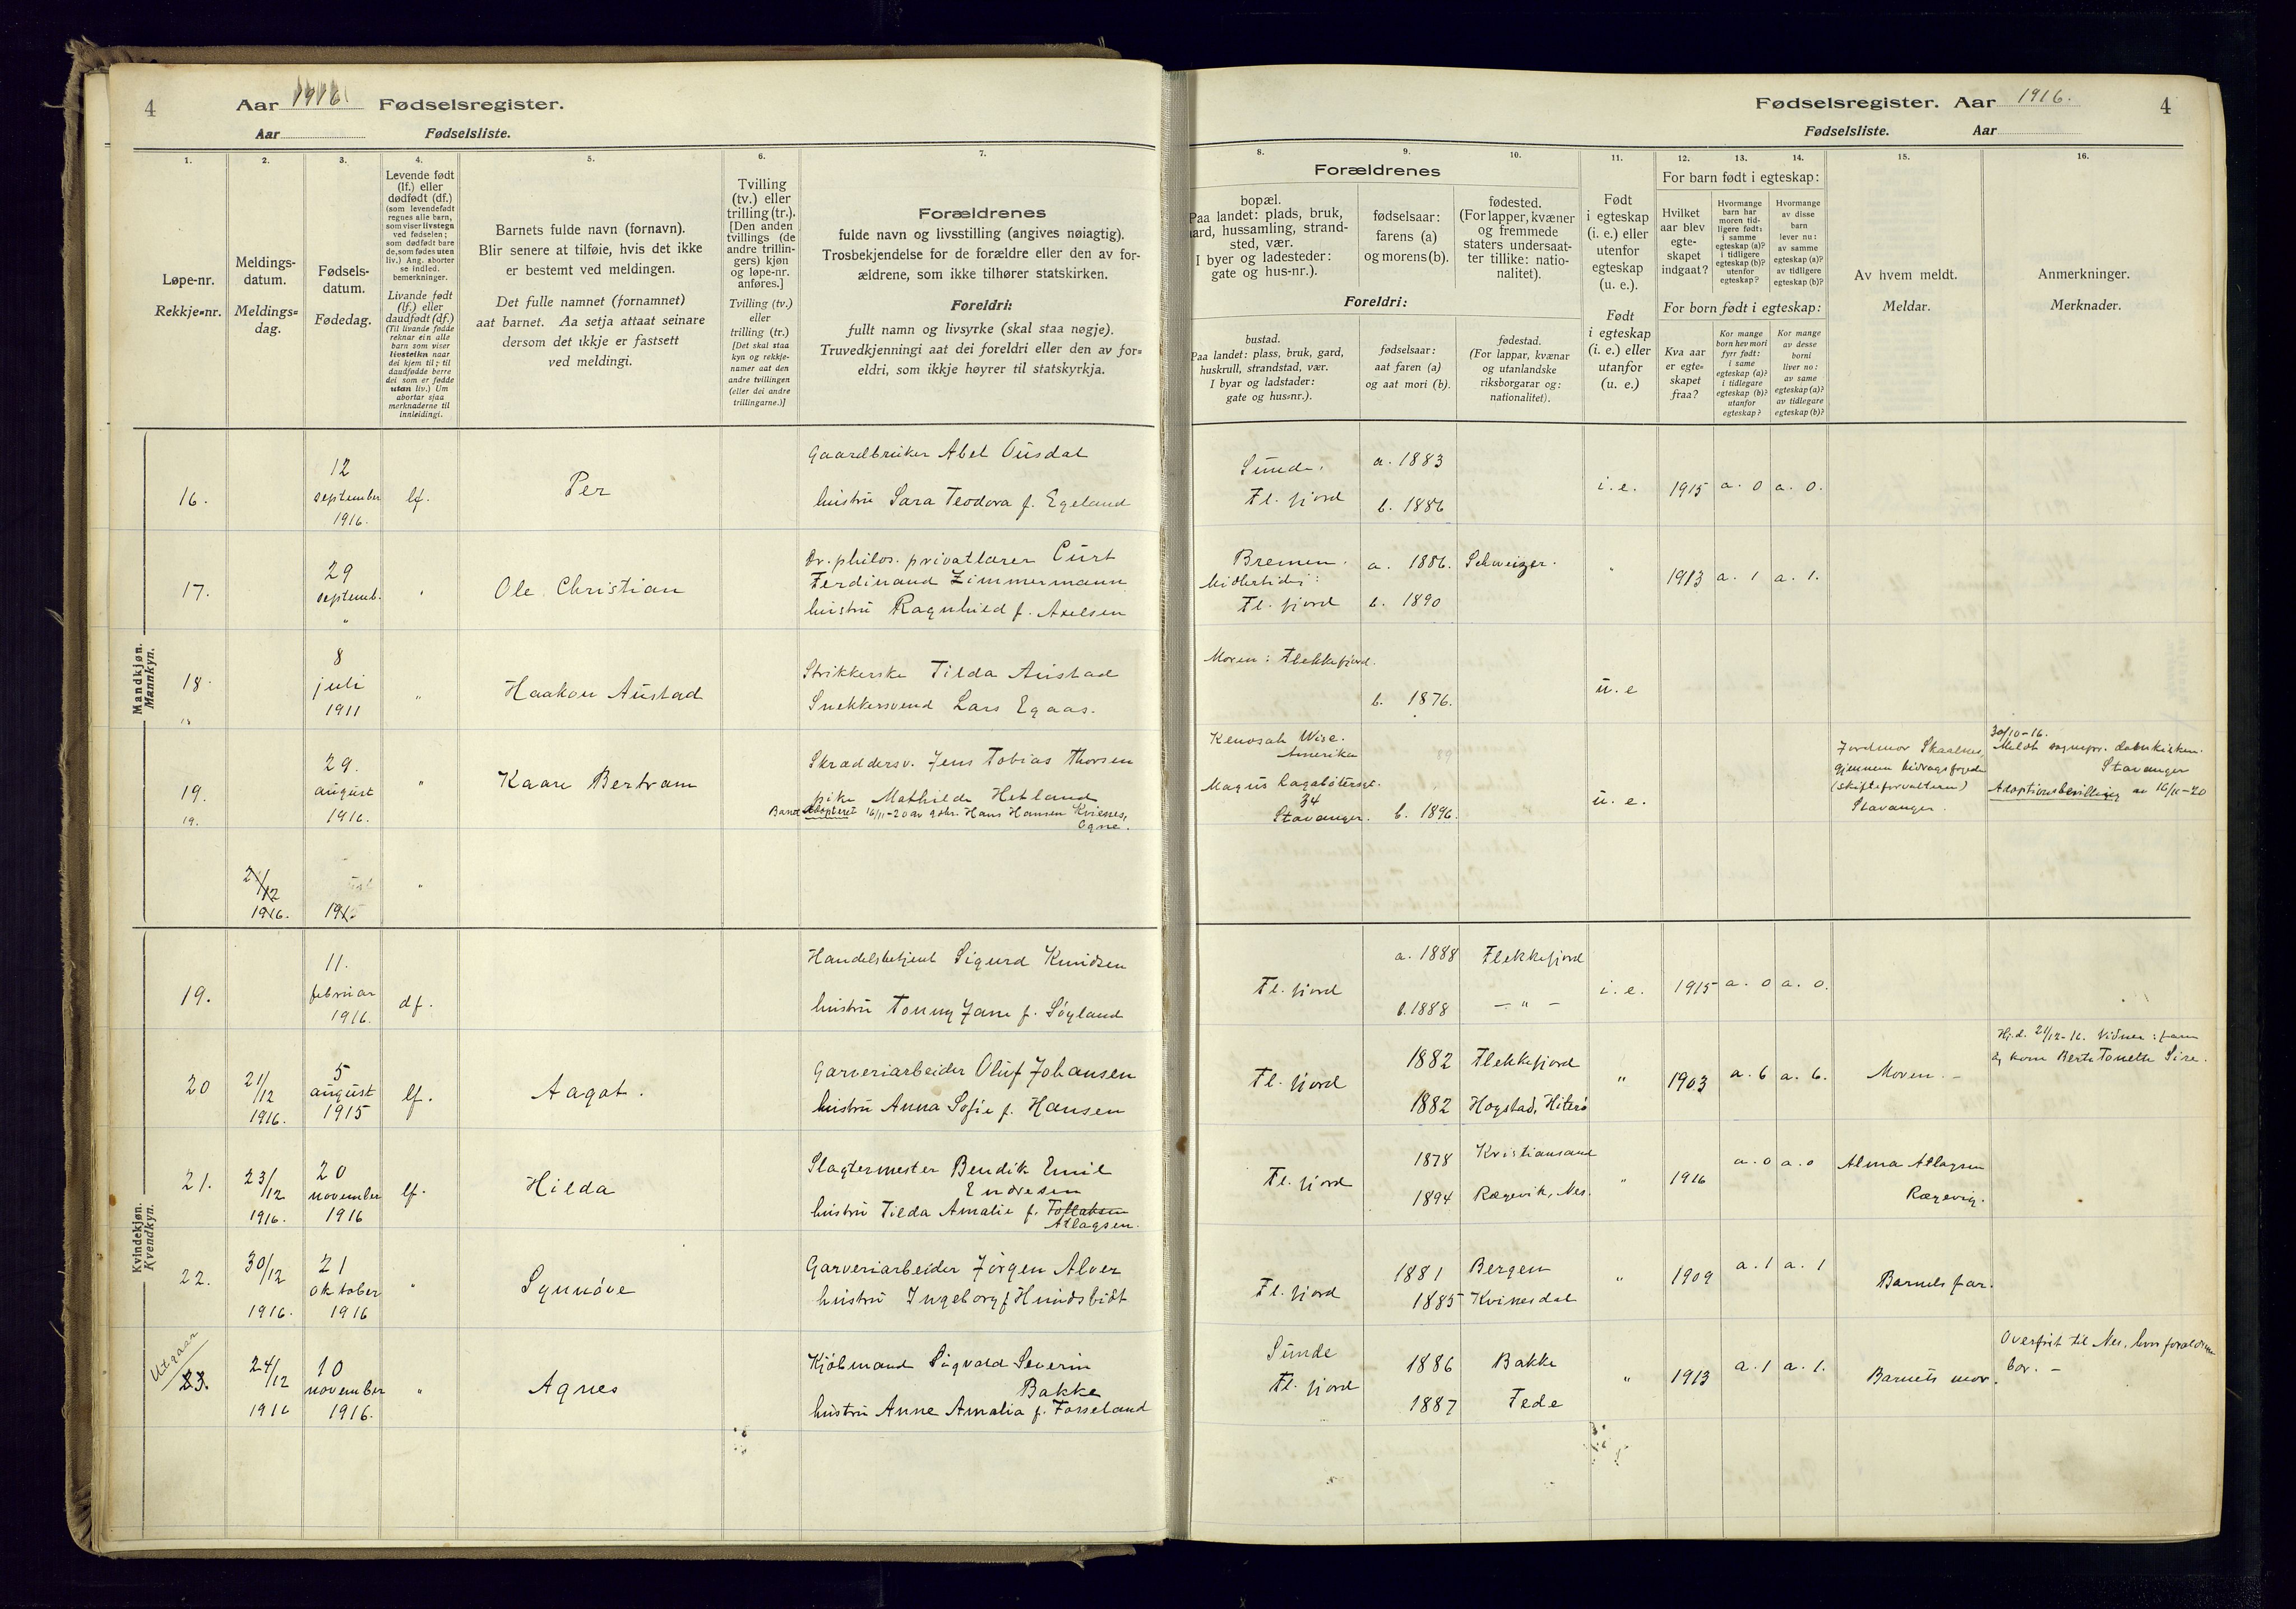 4
Aar 1916 Fødselsregister.
Aar Fødselsliste.
Fødselsregister. Aar 1916. 4
Fødselsliste. Aar
1. 2. 3. 4. 5. 6. 7.
Løpe-nr.
Rekkje=nr.
Meldings-
datum.
Meldings=
dag.
Fødsels-
datum.
Fødedag.
Levende født
(lf.) eller
dødfødt (df.)
(som levendefødt
regnes alle barn,
som viser livstegn
ved fødselen;
som dødfødt bare
de, som fødes uten
liv.) Ang. aborter
se indled.
bemerkninger.
Livande født
(lf.) eller
daudfødt (df.)
(Til livande fødde
reknar ein alle
barn som viser
livsteikn naar
dei kjem til; til
daudfødde berre
dei som er fødde
utan liv.) Um
abortar sjaa
merknaderne til
innleidingi.
Barnets fulde navn (fornavn).
Blir senere at tilføie, hvis det ikke
er bestemt ved meldingen.
Det fulle namnet (fornamnet)
aat barnet. Aa setja attaat seinare
dersom det ikkje er fastsett
ved meldingi.
Tvilling
(tv.) eller
trilling (tr.).
[Den anden
tvillings (de
andre trillin-
gers) kjøn
og løpe-nr.
anføres.]
Tvilling (tv.)
eller
trilling (tr.)
[Det skal staa
kyn og rekkje-
numer aat den
andre tvillingen
(eller dei andre
trillingarne.)]
Forældrenes
fulde navn og livsstilling (angives nøiagtig).
Trosbekjendelse for de forældre eller den av for-
ældrene, som ikke tilhører statskirken.
Foreldri:
fullt namn og livsyrke (skal staa nøgje).
Truvedkjenningi aat dei foreldri eller den av for=
eldri, som ikkje høyrer til statskyrkja.
8. 9. 10. 11. 12. 13. 14. 15. 16.
Forældrenes
bopæl.
Paa landet: plads, bruk,
gaard, hussamling, strand-
sted, vær.
I byer og ladesteder:
gate og hus-nr.).
fødselsaar:
farens (a)
og morens (b).
fødested.
(For lapper, kvæner
og fremmede
staters undersaat-
ter tillike: natio-
nalitet).
Foreldri:
bustad.
Paa landet: plass, bruk, gard,
huskrull, strandstad, vær.
I byar og ladstader:
gate og hus=nr.).
fødselsaar:
aat faren (a)
og aat mori (b).
fødestad.
(For lappar, kvænar
og utanlandske
riksborgarar og:
nationalitet).
Født
i egteskap
(i. e.) eller
utenfor
egteskap
(u. e.).
Født
i egteskap
(i. e.) eller
utanfor
(u. e.)
For barn født i egteskap:
Hvilket
aar blev
egte-
skapet
indgaat?
Hvormange
barn har
moren tid-
ligere født:
i samme
egteskap (a)?
i tidligere
egteskap (b)?
utenfor
egteskap?
Hvormange
av disse
barn
lever nu:
av samme
egteskap (a)?
av tidligere
egteskap (b)?
For born født i egteskap:
Kva aar
er egte=
skapet
fraa?
Kor mange
born hev mori
fyrr født:
i same
egteskap (a)?
i tidlegare
egteskap (b)?
utanfor
egteskap?
Kor mange
av desse
borni
liver no:
av same
egteskap (a)?
av tidlegare
egteskap (b)?
Av hvem meldt.
Meldar.
Anmerkninger.
Merknader.
Mandkjøn.
Mannkyn.
16. 12 september 1916. lf. Per
Gaardbruker Abel Ousdal
hustru Sara Teodora f. Egeland
Sunde. Fl. fjord a. 1883 b. 1886 i. e. 1915 a. 0 a. 0.
17. 29 septemb. " " Ole Christian
Dr. philos. privatlærer Curt
Ferdinand Zimmermann
hustru Ragnhild f. Axelsen
Bremen. Midlertidig: Fl. fjord a. 1886. b. 1890 Schweizer. " 1913 a. 1 a. 1.
18. 8 juli 1911 " Haakon Austad
Strikkerske Tilda Austad
Snekkersvend Lars Egaas.
Moren: Flekkefjord. b. 1876. u. e
19. 19. 29. august 1916. " Kaare Bertram
Skræddersv. Jens Tobias Thorsen
pike Mathilde Hetland
Barnet adopteret 16/11-20 av gbkr. Hans Hansen Kvienes,
Ogne.
Kenosah Wise.
Amerika
Magnus Lagabøtersgt.
34
Stavanger. b. 1896. u. e.
Jordmor Skaalnes,
gjennem bidragsfogden
(skifteforvalteren)
Stavanger.
30/10-16.
Meldt sognepr. domkirken.
Stavanger
Adoptionsbevilling av 16/11-20
2/12 1916. 191 "
Kvindekjøn.
Kvendkyn.
19. 11. februar 1916. df.
Handelsbetjent Sigurd Knudsen
hustru Tonny Jane f. Søyland
Fl. fjord a. 1888 Flekkefjord b. 1888 – " – i. e. 1915 a. 0 a. 0.
20 21/12 1916. 5 august 1915 lf. Aagot.
Garveriarbeider Oluf Johansen
hustru Anna Sofie f. Hansen
Fl. fjord 1882 Flekkefjord 1882 Hogstad, Hiterø " 1903 a. 6 a. 6. Moren. –
Hj.d. 21/12-16. Vidner: faren
og kone Berte Tonette Sire.
21. 23/12 1916. 20 november 1916 lf. Hilda
Slagtermester Bendik Emil
Endresen
hustru Tilda Amalie f. Tollaksen
Atlagsen.
Fl. fjord 1878 Kristiansand 1894 Rægevik, Nes. " 1916 a. 0 a. 0 Alma Atlagsen
Rægevig.
22. 30/12 1916. 21 oktober 1916 " Synnøve
Garveriarbeider Jørgen Alver
hustru Ingeborg f Hundsbidt
Fl. fjord 1881 Bergen 1885 Kvinesdal " 1909 a. 1 a. 1 Barnets far.
Utgaar
23. 24/12 1916 10 november 1916. " Agnes
Kjøbmand Sigvald Severin
Bakke
hustru Anne Amalia f. Fosseland
Sunde Fl. fjord 1886 Bakke 1887 Fede " 1913 a. 1 a. 1. Barnets mor.
Overført til Nes, hvor forældrene
bor. –